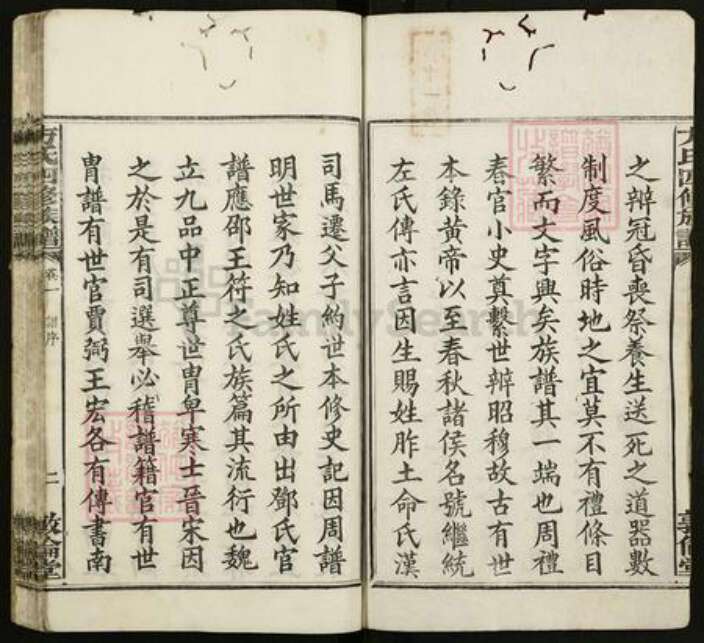 之辨冠昏喪祭養生送死之道器數
制度風俗時地之宜莫不有禮條目
繁而文字興矣族譜其一端也周禮
春官小史奠繫世辨昭穆故古有世
本錄黃帝以至春秋諸侯名號繼統
左氏傳亦言因生賜姓胙土命氏漢
司馬遷父子約世本修史記因周譜
明世家乃知姓氏之所由出鄧氏官
譜應邵王符之氏族篇其流行也魏
立九品中正尊世冑卑寒士晉宋因
之於是有司選舉必稽譜籍官有世
冑譜有世官賈弼王宏各有傳書南
方氏四修族譜
卷一
譜序
二
敦倫堂
FamilySearch